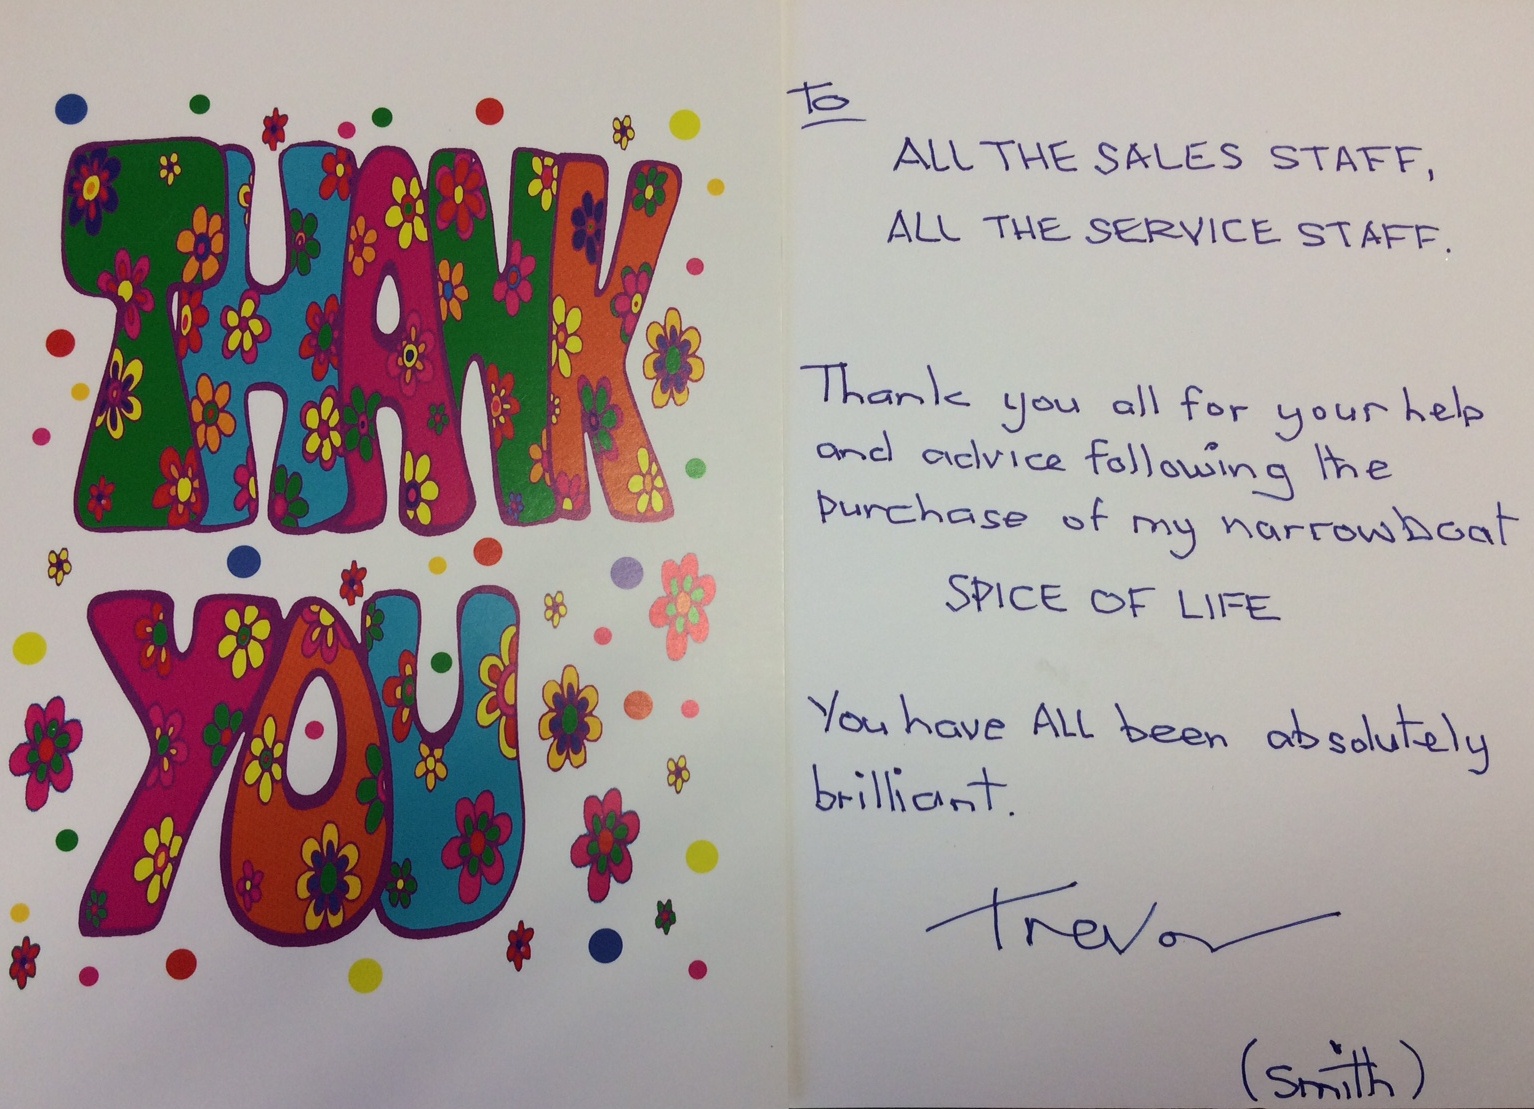 THANK
YOU
To
ALL THE SALES STAFF,
ALL THE SERVICE STAFF.
Thank you all for your help
and advice following the
purchase of my narrowboat
SPICE OF LIFE
You have ALL been absolutely
brilliant.
Trevor
(Smith)